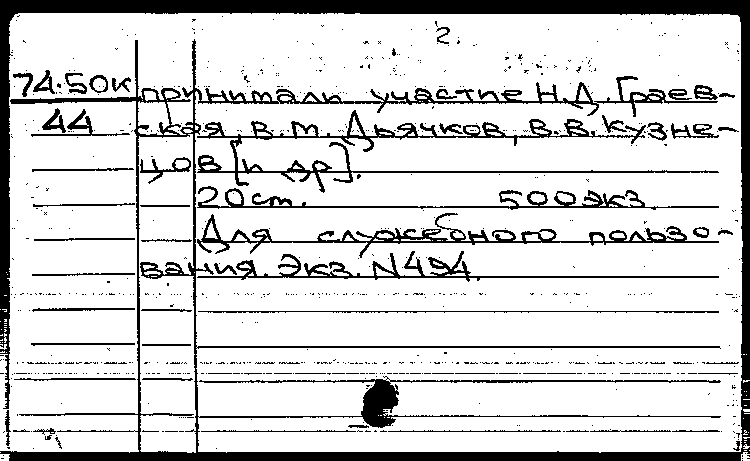 2.
74.50к принимали участие Н.Д. Граев-
44 ская, В.М. Дьячков, В.В. Кузне-
цов [и др].
20 ст. 500 экз.
Для служебного пользо-
вания. Экз. N494.